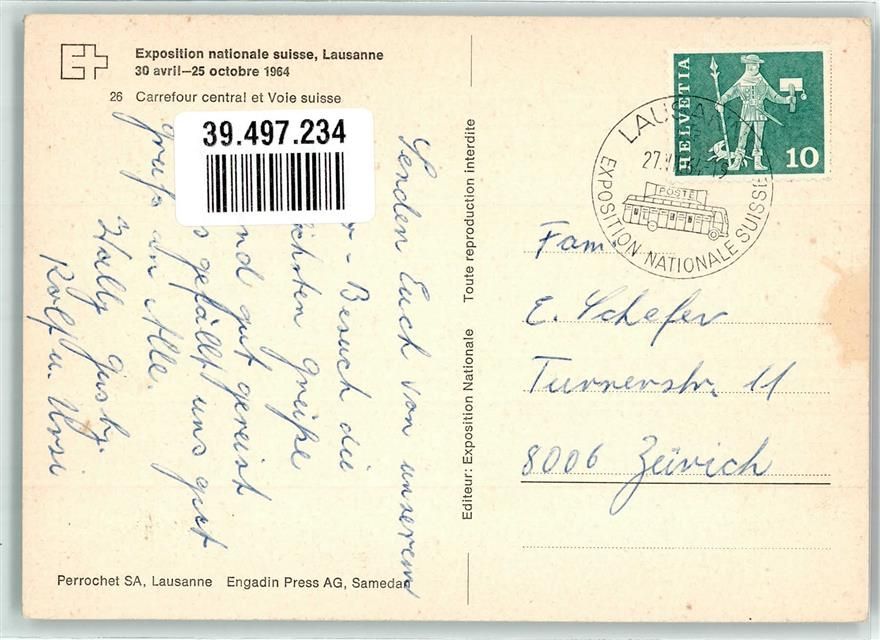 Exposition nationale suisse, Lausanne
30 avril—25 octobre 1964
26 Carrefour central et Voie suisse
39.497.234
Senden Euch von unserem
- Besuch die
chsten grüße
nd gut gereist
s gefällt uns gut
gruß an Alle.
Rolf u. Ursi
Perrochet SA, Lausanne Engadin Press AG, Samedan
Editeur: Exposition Nationale Toute reproduction interdite
HELVETIA
10
LAUSANNE
27.
EXPOSITION NATIONALE SUISSE
POSTE
Fam.
E. Schefer
Turnerstr. 11
8006 Zürich